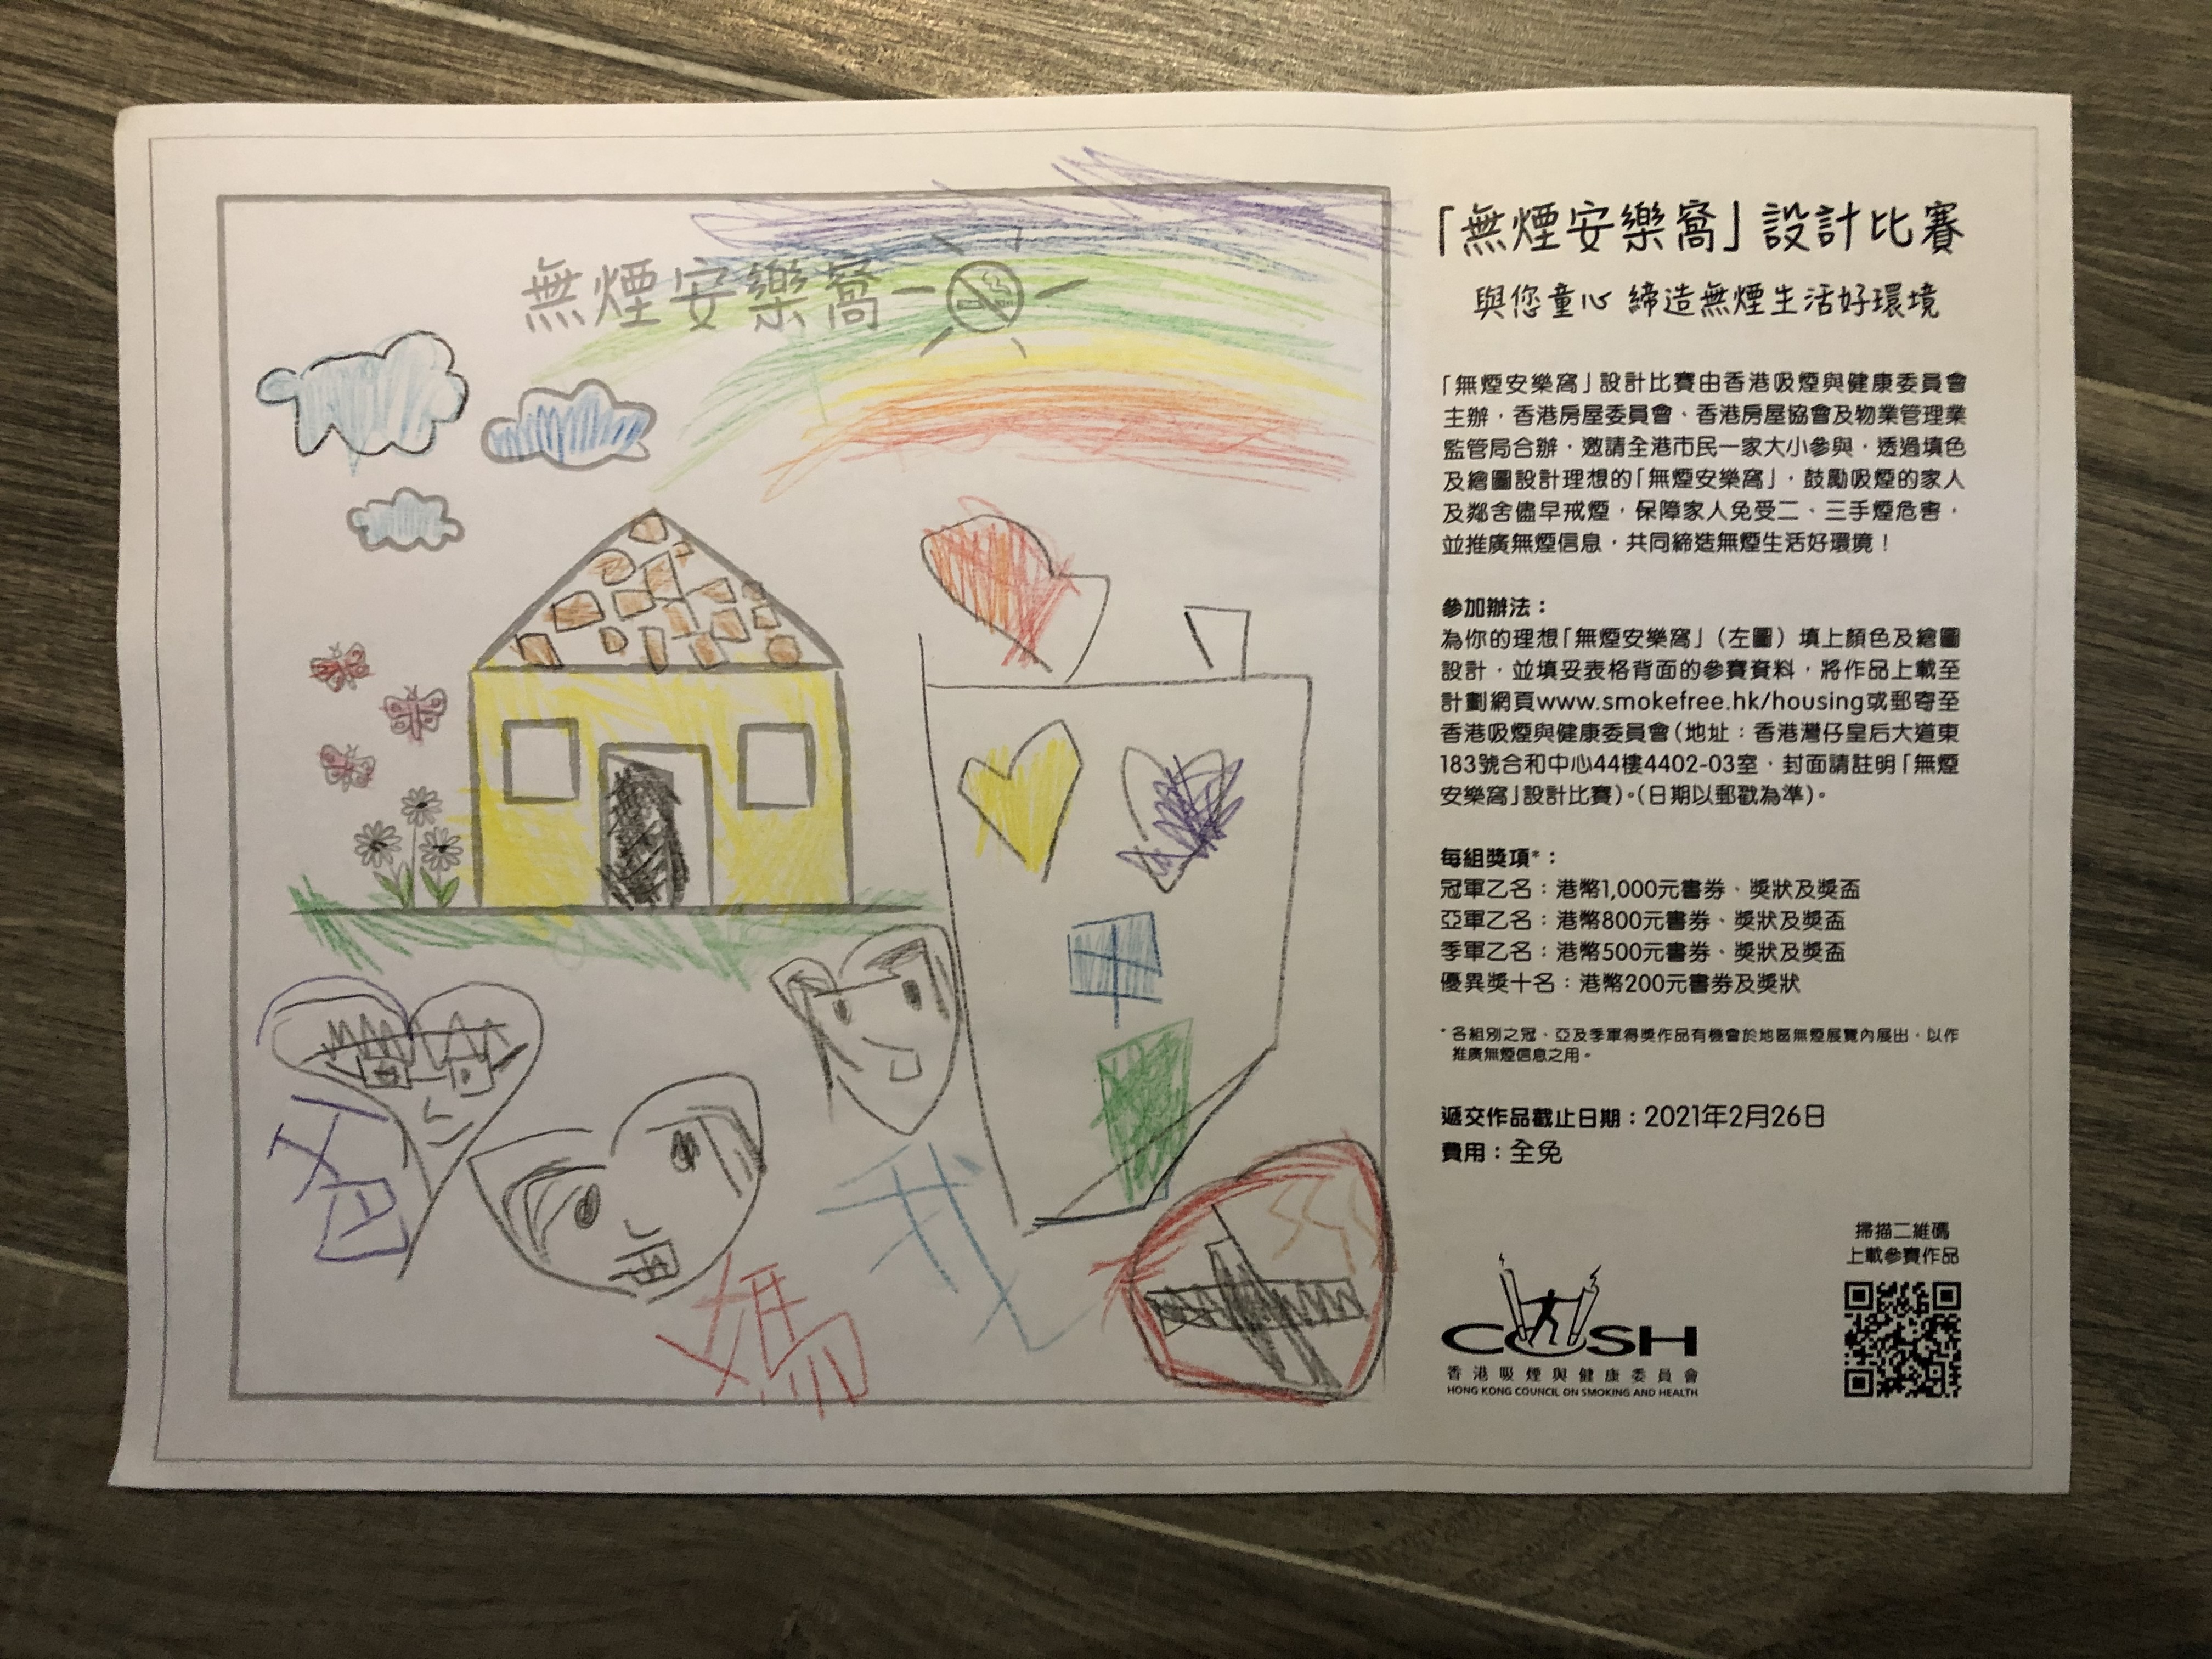 無煙安樂窩
爸
媽
我
「無煙安樂窩」設計比賽
與您童心 締造無煙生活好環境
「無煙安樂窩」設計比賽由香港吸煙與健康委員會
主辦，香港房屋委員會、香港房屋協會及物業管理業
監管局合辦，邀請全港市民一家大小參與，透過填色
及繪圖設計理想的「無煙安樂窩」，鼓勵吸煙的家人
及鄰舍儘早戒煙，保障家人免受二、三手煙危害，
並推廣無煙信息，共同締造無煙生活好環境！
參加辦法：
為你的理想「無煙安樂窩」（左圖）填上顏色及繪圖
設計，並填妥表格背面的參賽資料，將作品上載至
計劃網頁www.smokefree.hk/housing或郵寄至
香港吸煙與健康委員會（地址：香港灣仔皇后大道東
183號合和中心44樓4402-03室，封面請註明「無煙
安樂窩」設計比賽）。（日期以郵戳為準）。
每組獎項*：
冠軍乙名：港幣1,000元書券、獎狀及獎盃
亞軍乙名：港幣800元書券、獎狀及獎盃
季軍乙名：港幣500元書券、獎狀及獎盃
優異獎十名：港幣200元書券及獎狀
*各組別之冠、亞及季軍得獎作品有機會於地區無煙展覽內展出，以作
推廣無煙信息之用。
遞交作品截止日期：2021年2月26日
費用：全免
掃描二維碼
上載參賽作品
COSH
香港吸煙與健康委員會
HONG KONG COUNCIL ON SMOKING AND HEALTH